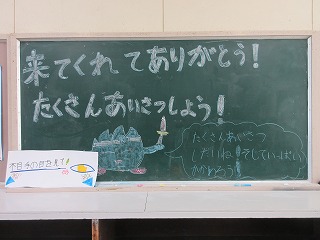 来てくれてありがとう!
たくさんあいさつしよう!
たくさんあいさつ
したいね!そしていっぱい
かかわろう!